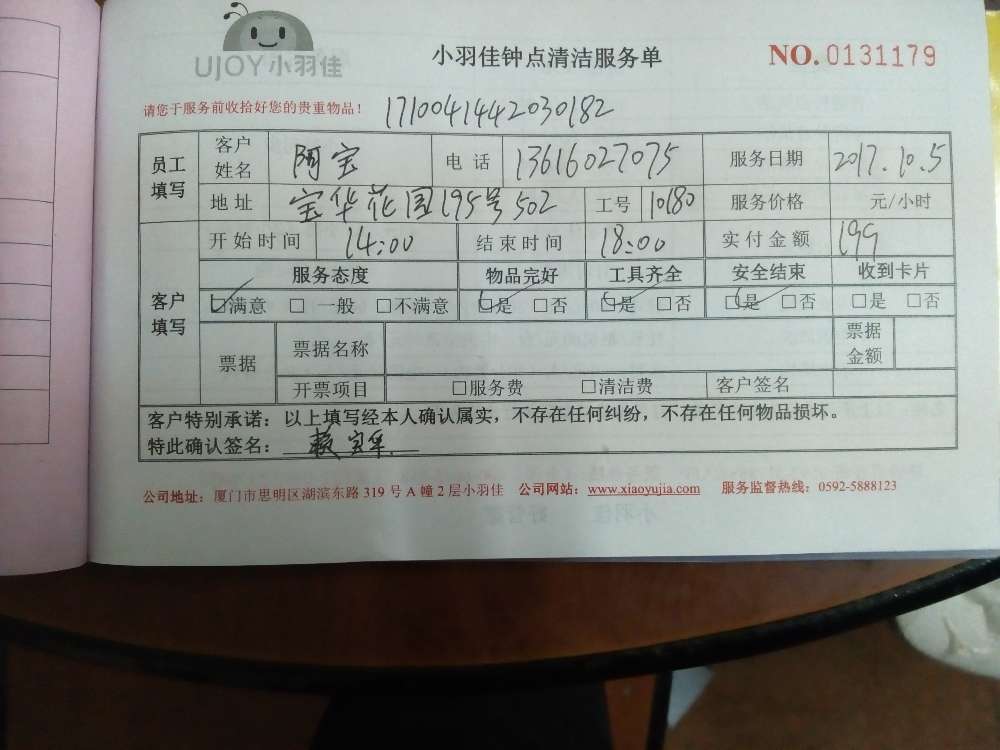 UJOY小羽佳 小羽佳钟点清洁服务单 NO.0131179
请您于服务前收拾好您的贵重物品! 1710041442030182
员工填写 客户姓名 阿宝 电话 13616027075 服务日期 2017.10.5
地址 宝华花园195号502 工号 10180 服务价格 元/小时
客户填写 开始时间 14:00 结束时间 18:00 实付金额 199
服务态度 物品完好 工具齐全 安全结束 收到卡片
☑满意 □一般 □不满意 ☑是 □否 ☑是 □否 ☑是 □否 □是 □否
票据 票据名称 票据金额
开票项目 □服务费 □清洁费 客户签名
客户特别承诺:以上填写经本人确认属实,不存在任何纠纷,不存在任何物品损坏。
特此确认签名:赖宝
公司地址:厦门市思明区湖滨东路 319 号 A 幢 2 层小羽佳 公司网站:www.xiaoyujia.com 服务监督热线:0592-5888123